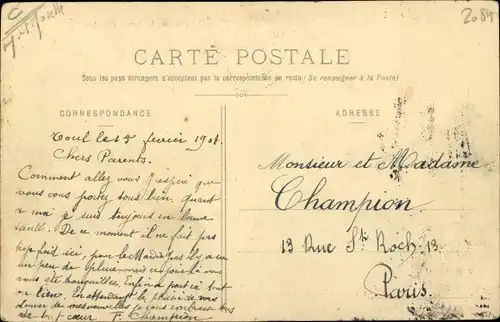 2084
M.-et-Moselle
CARTE POSTALE
Tous les pays étrangers n'acceptent pas la correspondance au recto (Se renseigner à la Poste)
CORRESPONDANCE
ADRESSE
Toul le 15 fevrier 1908
Chers Parents.
Comment allez vous j'espère que
vous vous portez tous bien. Quant
a moi je suis toujours en bonne
santé. De ce moment il ne fait pas
trop froid ici, par le
un peu de pluie mais
nous tranquilles. Enfin a part ça tout
va bien. En attendant le plaisir de vous
donner de mes nouvelles je vous embrasse tous
de tout cœur. F. Champion
Monsieur et Madame
Champion
13 Rue St Roch 13
Paris.